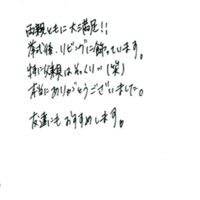 両親ともに大満足!!
挙式後、リビングに飾っています。
特に父親はそっくり!!(笑)
本当にありがとうございました。
友達にもおすすめします。